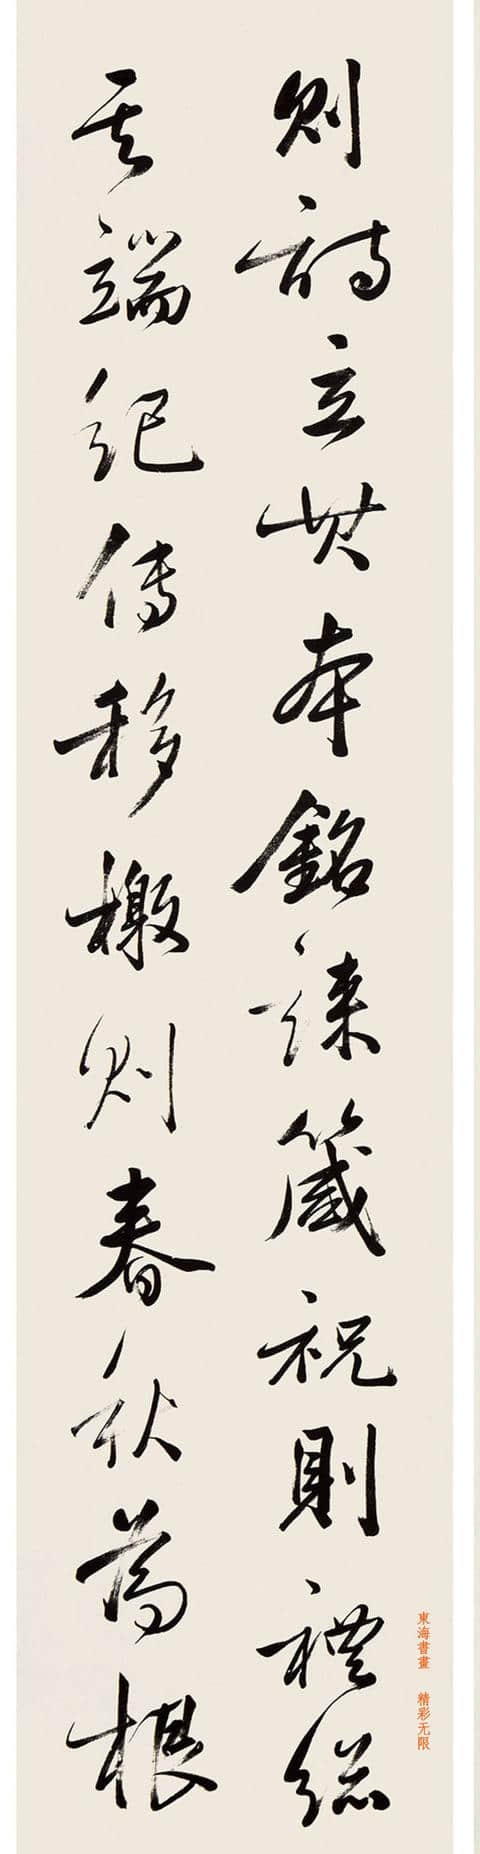 則詩立其本銘誄箴祝則禮總
其端紀傳移檄則春秋為根
東海書畫 精彩无限